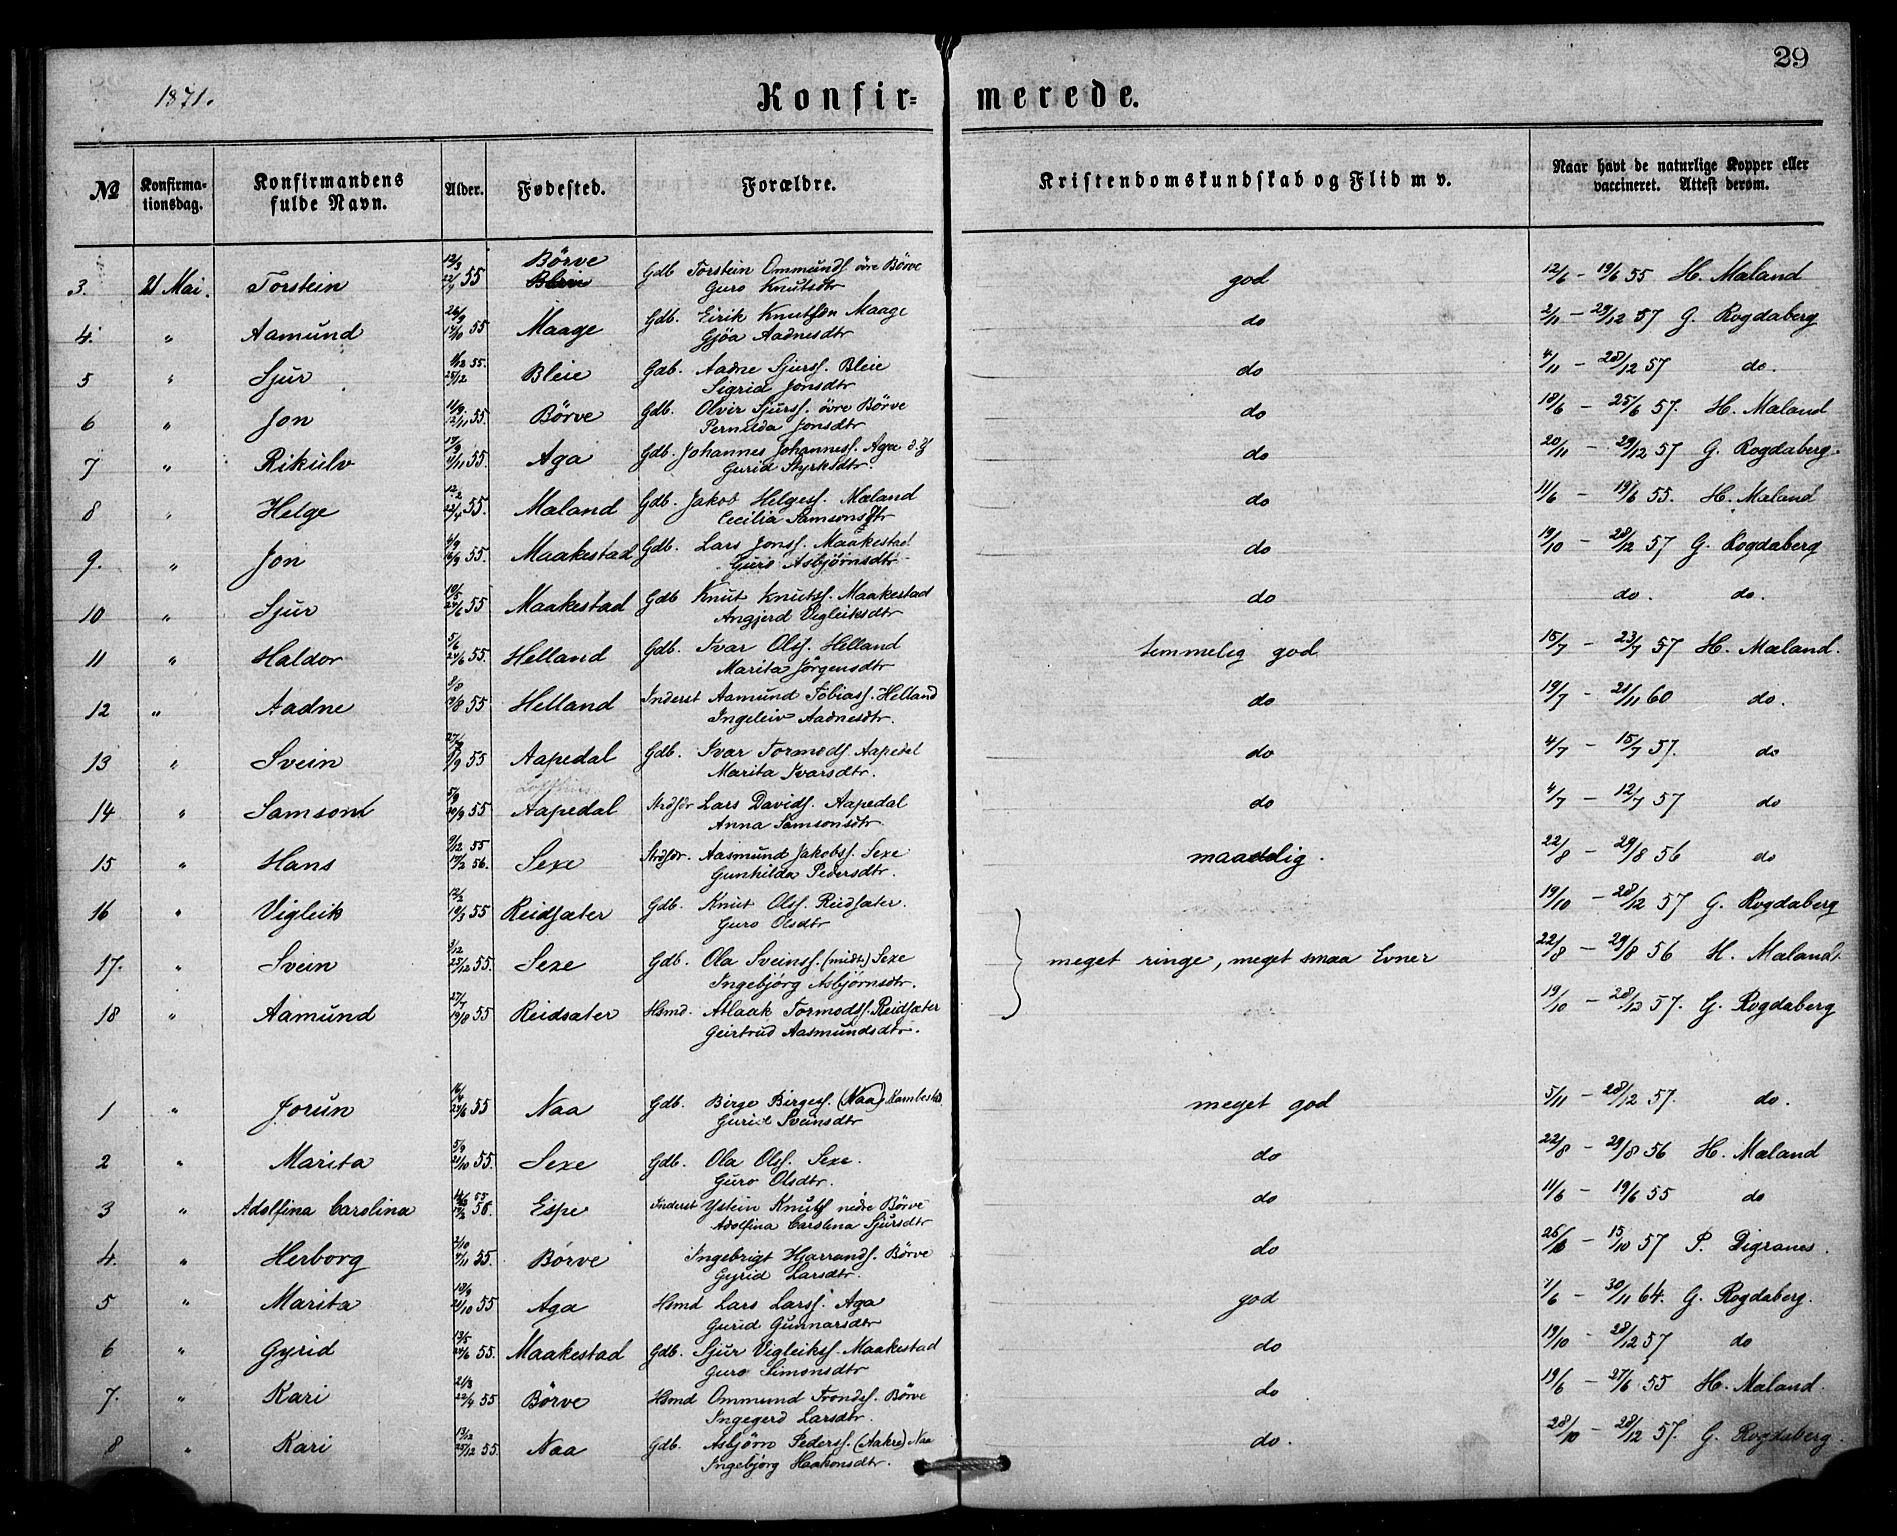 29
1871.
Konfir=merede.
No Konfirmationsdag. Konfirmandens fulde Navn. Alder. Fødested. Forældre. Kristendomskundskab og Flid m v. Naar havt de naturlige Kopper eller vaccineret. Attest derom.
3. 21 Mai. Torstein 12/3 22/4 55 Börve Gdb Torstein Ommunds. övre Börve god 12/6 - 19/6 55 H. Mæland
Bleie Guro Knutsdtr
4. " Aamund 26/9 14/10 55 Maage Gdb. Eirik Knutson Maage do 2/11 - 29/12 57 G. Rogdaberg
Gjöa Aadnesdtr
5 " Sjur 1/12 55. 25/12 Bleie Gdb. Aadne Sjurss. Bleie do 4/11 - 28/12 57 do.
Sigrid Jonsdtr
6 " Jon 11/9 12/11 55 Börve Gdb. Olvir Sjurss. övre Börve do 18/6 - 25/6 57. H. Mæland
Pernilda Jonsdtr
7 " Rikulv 55. Aga Gdb. Johannes Johanness. Aga d.y do 20/11 - 29/12 57 G. Rogdaberg.
Gurid Styrksdtr.
8 " Helge 12/2 22/4 55. Mæland Gdb. Jakob Helgess. Mæland do 11/6 - 19/6 55. H. Mæland
Cecilia Samsonsdtr
9. " Jon 55. Maakestad Gdb. Lars Jonss. Maakestad do 19/10 - 28/12 57 G. Rogdaberg
Guro Asbjörnsdtr
10 " Sjur 24/6 55 Maakestad Gdb Knut Knutss. Maakestad do do. do.
Angjerd Vigleiksdtr
11 " Haldor 5/6 24/6 55. Helland Gdb. Ivar Olss. Helland temmelig god 15/7 - 23/7 57 H. Mæland.
Marita Jörgensdtr
12 " Aadne 8/8 19/8 55 Helland Inderst Aamund Tobiass. Helland do 19/7 - 21/11 60 do.
Ingeleiv Aadnesdtr.
13 " Svein 55 Aapedal Gdb. Ivar Tormods. Aapedal do 4/7 - 15/7 57. do
Marita Ivarsdtr.
Lofthus
14 " Samson 5/9 20/9 55 Aapedal Strdsdr Lars Davids. Aapedal do 4/7 - 12/7 57 do
Anna Samsonsdtr.
15 " Hans 9/12 55 17/2 56. Sexe Strdsdr. Aasmund Jakobs. Sexe maadelig. 22/8 - 29/8 56 do
Gunhilda Pedersdtr.
16 " Vigleik 12/2 19/3 55 Reidsæter Gdb. Knut Olss. Reidsæter. 19/10 - 28/12 57 G. Rogdaberg
Guro Olsdtr
17. " Svein 3/12 25/12 55. Sexe Gdb. Ola Sveinss. (midt) Sexe meget ringe, meget smaa Evner 22/8 - 29/8 56 H. Mæland.
Ingebjörg Asbjörnsdtr.
18 " Aamund 27/7 19/8 55 Reidsæter Hsmd. Aslaak Tormodss. Reidsæter 19/10 - 28/12 57. G. Rogdaberg
Geirtrud Aasmundsdtr.
1 " Jorun 24/6 55 Naa Gdb. Birge Birgess. (Naa) Kambestad meget god 5/11 - 28/12 57. do.
Gurid Sveinsdtr
2 " Marita 5/9 21/10 55. Sexe Gdb. Ola Olss. Sexe. do 22/8 - 29/8 56 H. Mæland
Guro Olsdtr.
3 " Adolfina Carolina 55 56. Espe Inderst Ystein Knuts nedre Börve do 11/6 - 19/6 55 do
Adolfina Carolina Sjursdtr
4. " Herborg 2/10 4/11 55. Börve Ingebrigt Hjarrands. Börve do 15/10 57 P. Digranes.
Gyrid Larsdtr.
5 " Marita 21/10 55 Aga Hsmd Lars Larss. Aga god 7/6 - 30/11 64. G. Rogdaberg.
Gurid Gunnarsdtr
6 " Gyrid 24/6 55. Maakestad Gdb. Sjur Vigleikss. Maakestad do 19/10 - 28/12 57 do
Guro Simonsdtr
7. " Kari 21/3 22/4 55 Börve Hsmd Ommund Tronds. Börve do 19/6 - 27/6 55 H. Mæland.
Ingegerd Larsdtr.
8 " Kari 13/12 25/12 55. Naa Gdb. Asbjörn Pederss. (Aakre) Naa do. 28/10 - 28/12 57. G. Rogdaberg.
Ingebjörg Haakonsdtr.